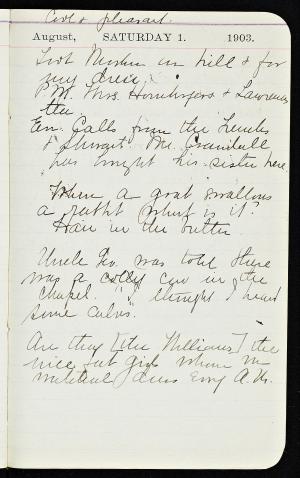 Cool & pleasant.
August, SATURDAY 1. 1903.
Got Muslin in hill & for
my dress.
P.M. Mrs. & Lawrence
Eve. Calls from the
& Stewart. Mr. Crandall
has brought his sister here.
When a goat swallows
a rabbit what is it?
Hair in the butter
Uncle Geo. was told there
was a colly cow in the
chapel. "I thought I heard
some calves.
Are they [the Williams] the
nice fat girls whom